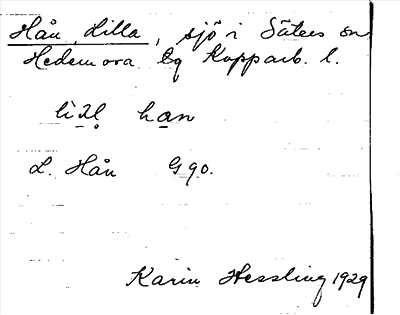 Hån, Lilla, sjö i Säters sn
Hedemora tg Kopparb. l.
lìḷḷ han
L. Hån G 90.
Karin Hessling 1929